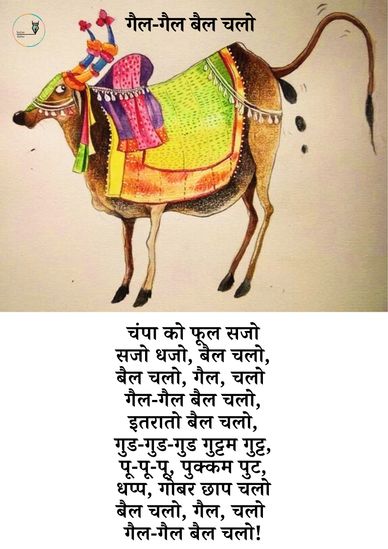 गैल-गैल बैल चलो
चंपा को फूल सजो
सजो धजो, बैल चलो,
बैल चलो, गैल, चलो
गैल-गैल बैल चलो,
इतरातो बैल चलो,
गुड-गुड-गुड गुट्टम गुट्ट,
पू-पू-पू, पुक्कम पुट,
धप्प, गोबर छाप चलो
बैल चलो, गैल, चलो
गैल-गैल बैल चलो!